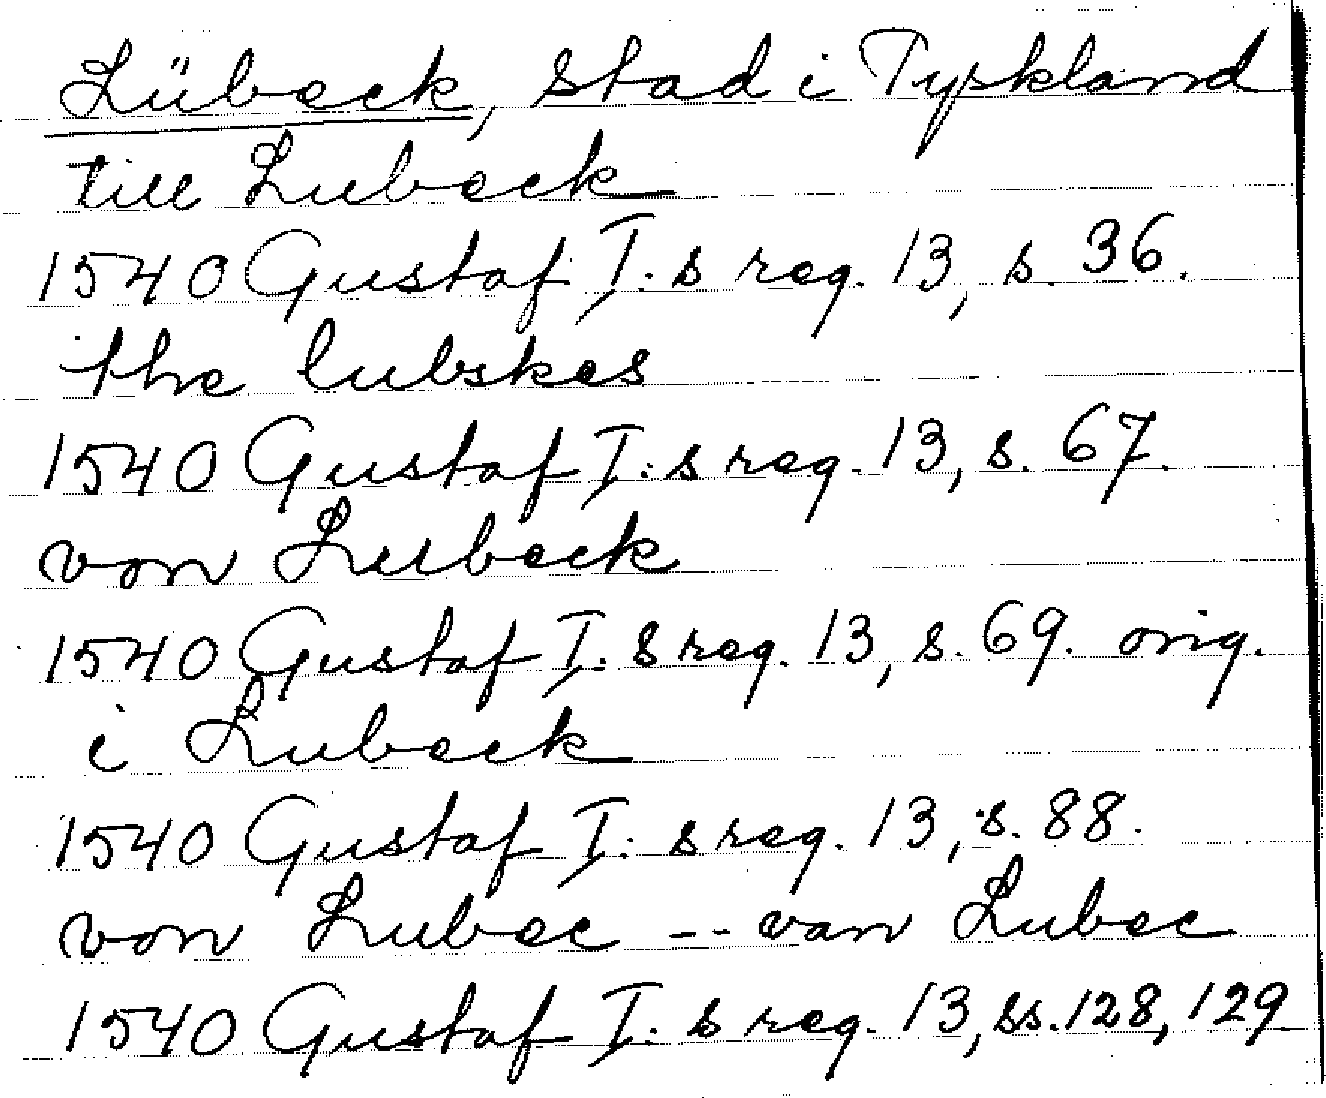 Lübeck, stad i Tyskland
till Lubeck
1540 Gustaf I:s reg. 13, s. 36.
the lubskes
1540 Gustaf I:s reg. 13, s. 67.
von Lubeck
1540 Gustaf I:s reg. 13, s. 69. orig.
i Lubeck
1540 Gustaf I:s reg. 13, s. 88.
von Lubec -- van Lubec
1540 Gustaf I:s reg. 13, ss. 128, 129